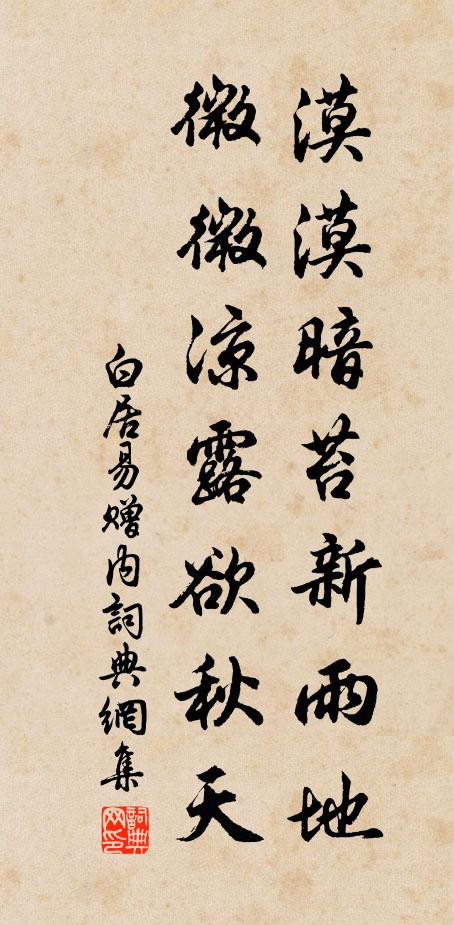 漠漠暗苔新雨地
微微涼露欲秋天
白居易贈內詞典網集
詞典网印